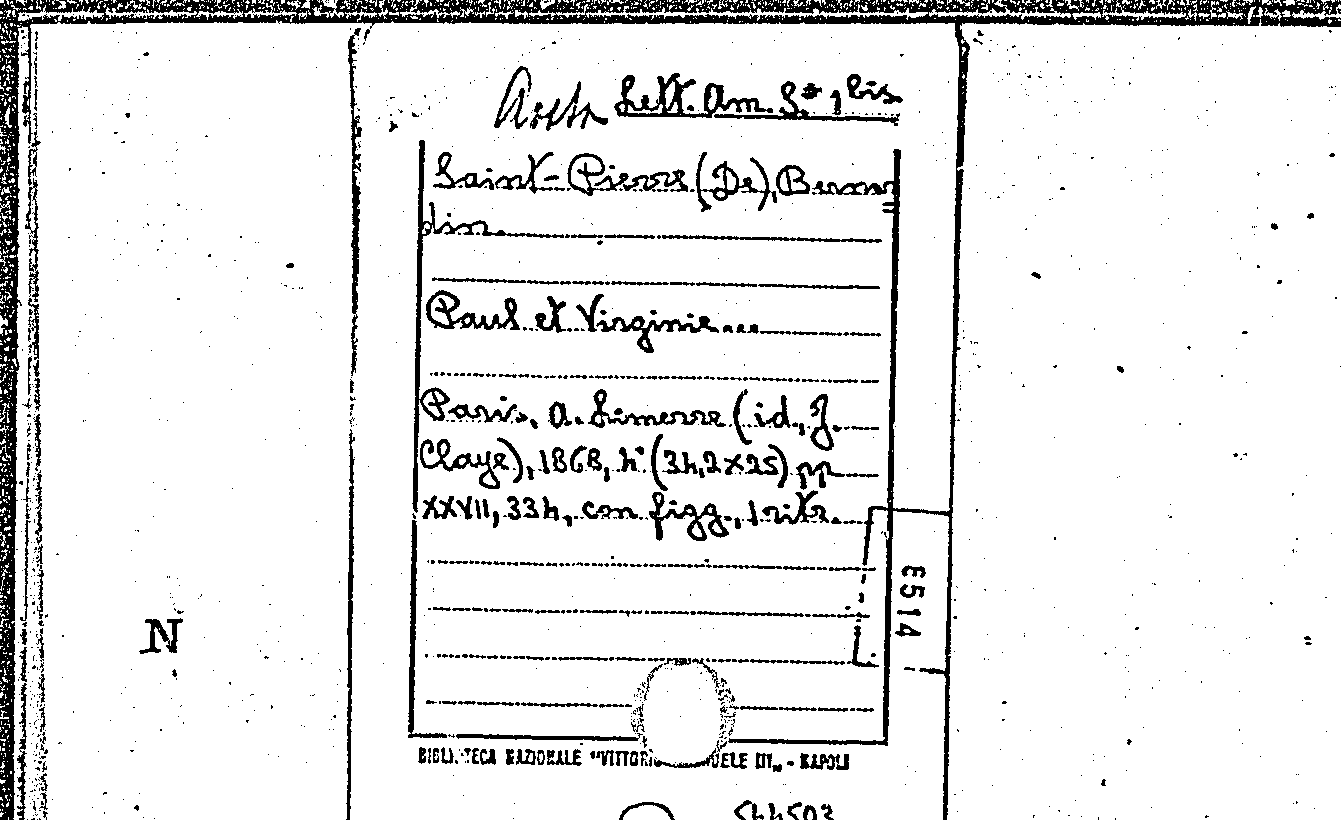 Aosta Lett. Am. S*, bis
Saint-Pierre (De), Bernar=
din.
Paul et Virginie...
Paris, A. Limerre (id., J.
Claye), 1868, 4° (34,2x25) pp
XXVII, 334, con figg., 1 ritr.
E514
N
BIBLIOTECA NAZIONALE "VITTORIO EMANUELE III" - NAPOLI
544503